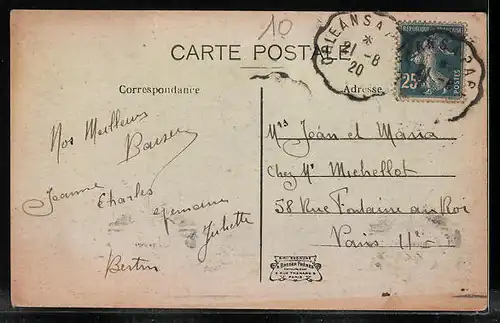 10
CARTE POSTALE
ORLEANS A PARIS
21 -8
20
RÉPUBLIQUE FRANÇAISE
25
POSTES
Correspondance
Adresse
Nos Meilleurs
Baisers
Jeanne
Charles
Germaine
Juliette
Bertin
Mrs Jean et Maria
Chez Mr Michellot
58 Rue Fontaine au Roi
Paris 11e